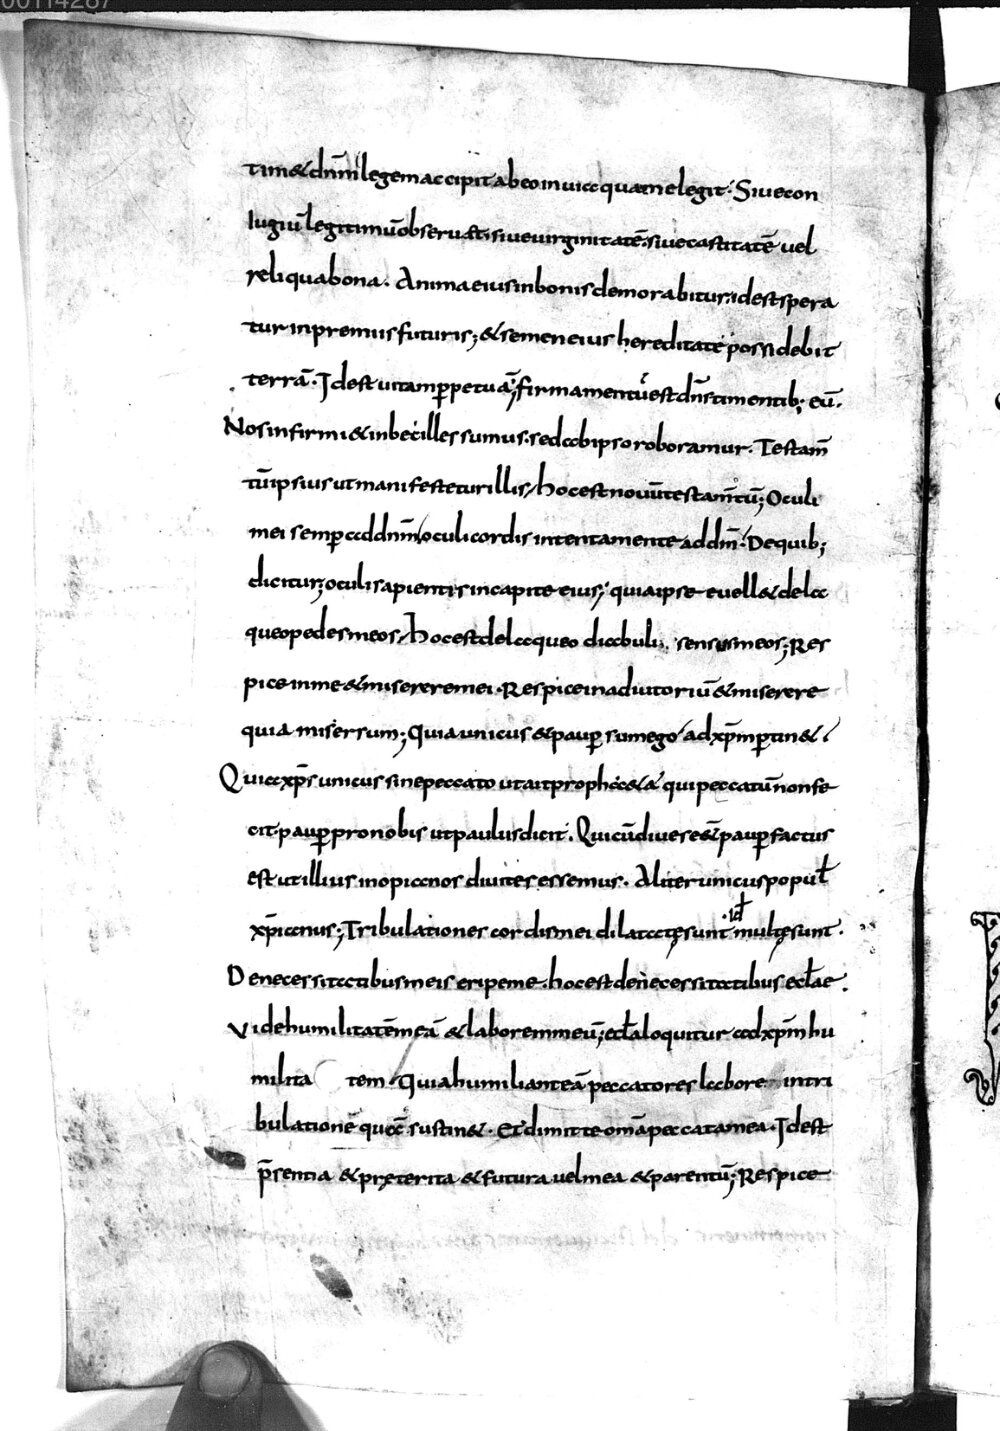 00114287
tim & dnm̄ legem accipit ab eo in uia quam elegit. Siue con
iugiū legitimū obseruat siue uirginitatē. siue castitatē uel
reliqua bona. Anima eius in bonis demorabitur. id est spera
tur in premiis futuris; & semen eius hereditate possidebit
terrā. Id est uitam ꝑpetuā; firmamentū est dn̄s timentib; eū.
Nos infirmi & inbecilles sumus. sed ab ipso roboramur. Testam̄
tū ipsius ut manifestetur illis, hoc est nouū testam̄tū; Oculi
mei semꝑ ad dnm̄ oculi cordis intenta mente ad dm̄. De quib;
dicitur; oculi sapientis in capite eius; quia ipse euell& de la
queo pedes meos, hoc est de laqueo diabuli. sensus meos; Res
pice in me & miserere mei. Respice in adiutoriū & miserere
quia miser sum; Quia unicus & pauꝑ sum ego ad xp̄m ꝑtin&
Quia xp̄s unicus sine peccato ut ait propheta qui peccatū non fe
cit. pauꝑ pro nobis ut paulus dicit. Qui cū diues ess& pauꝑ factus
est ut illius inopia nos diuites essemus. Aliter unicus popuł
xp̄ianus; Tribulationes cordis mei dilatatę sunt .id̄ multę sunt.
De necessitatibus meis eripe me. hoc est de necessitatibus eccłae.
Vide humilitatē meā & laborem meū; eccła loquitur ad xp̄m hu
milita tem. Quia humiliant eā peccatores labore in tri
bulationē quā sustin&. Et dimitte om̄a peccata mea. Id est
p̄sentia & pręterita & futura uel mea & parentū; Respice